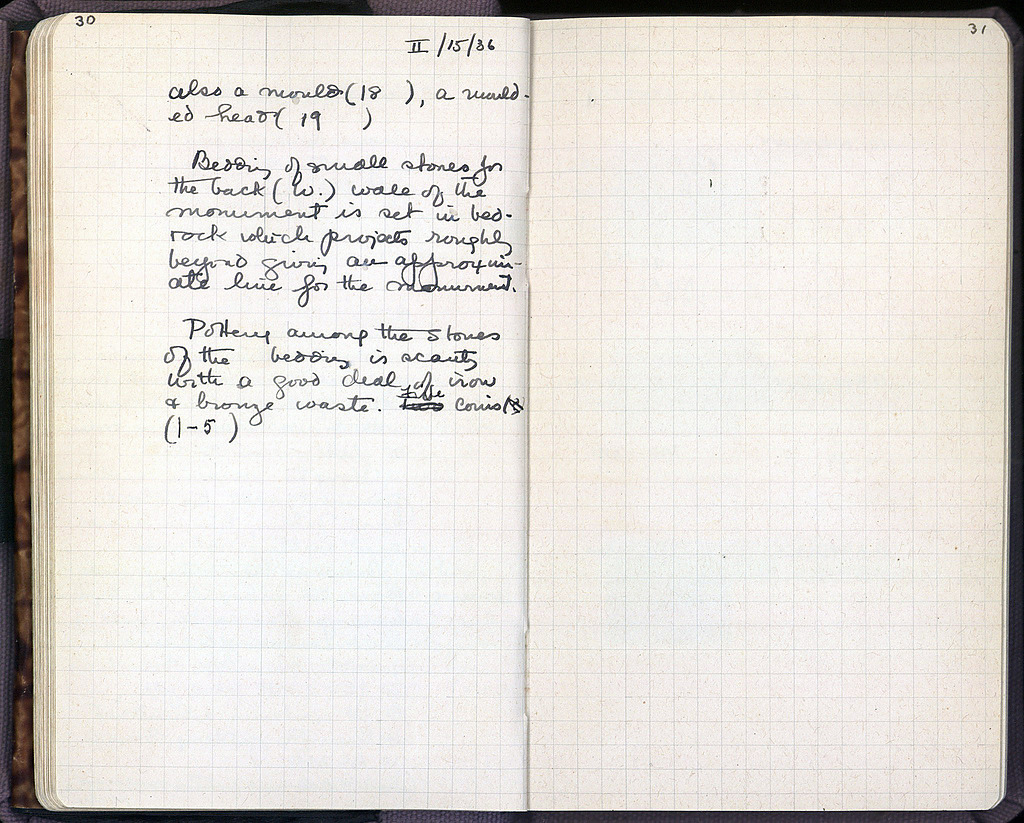 30
II/15/36
also a mould (18 ), a mould-
ed head ( 19 )
Bedding of small stones for
the back (W.) wall of the
monument is set in bed-
rock which projects roughly
beyond giving an approxim-
ate line for the monument.
Pottery among the stones
of the bedding is scanty
with a good deal of iron
& bronze waste. Five coins
(1-5 )
31